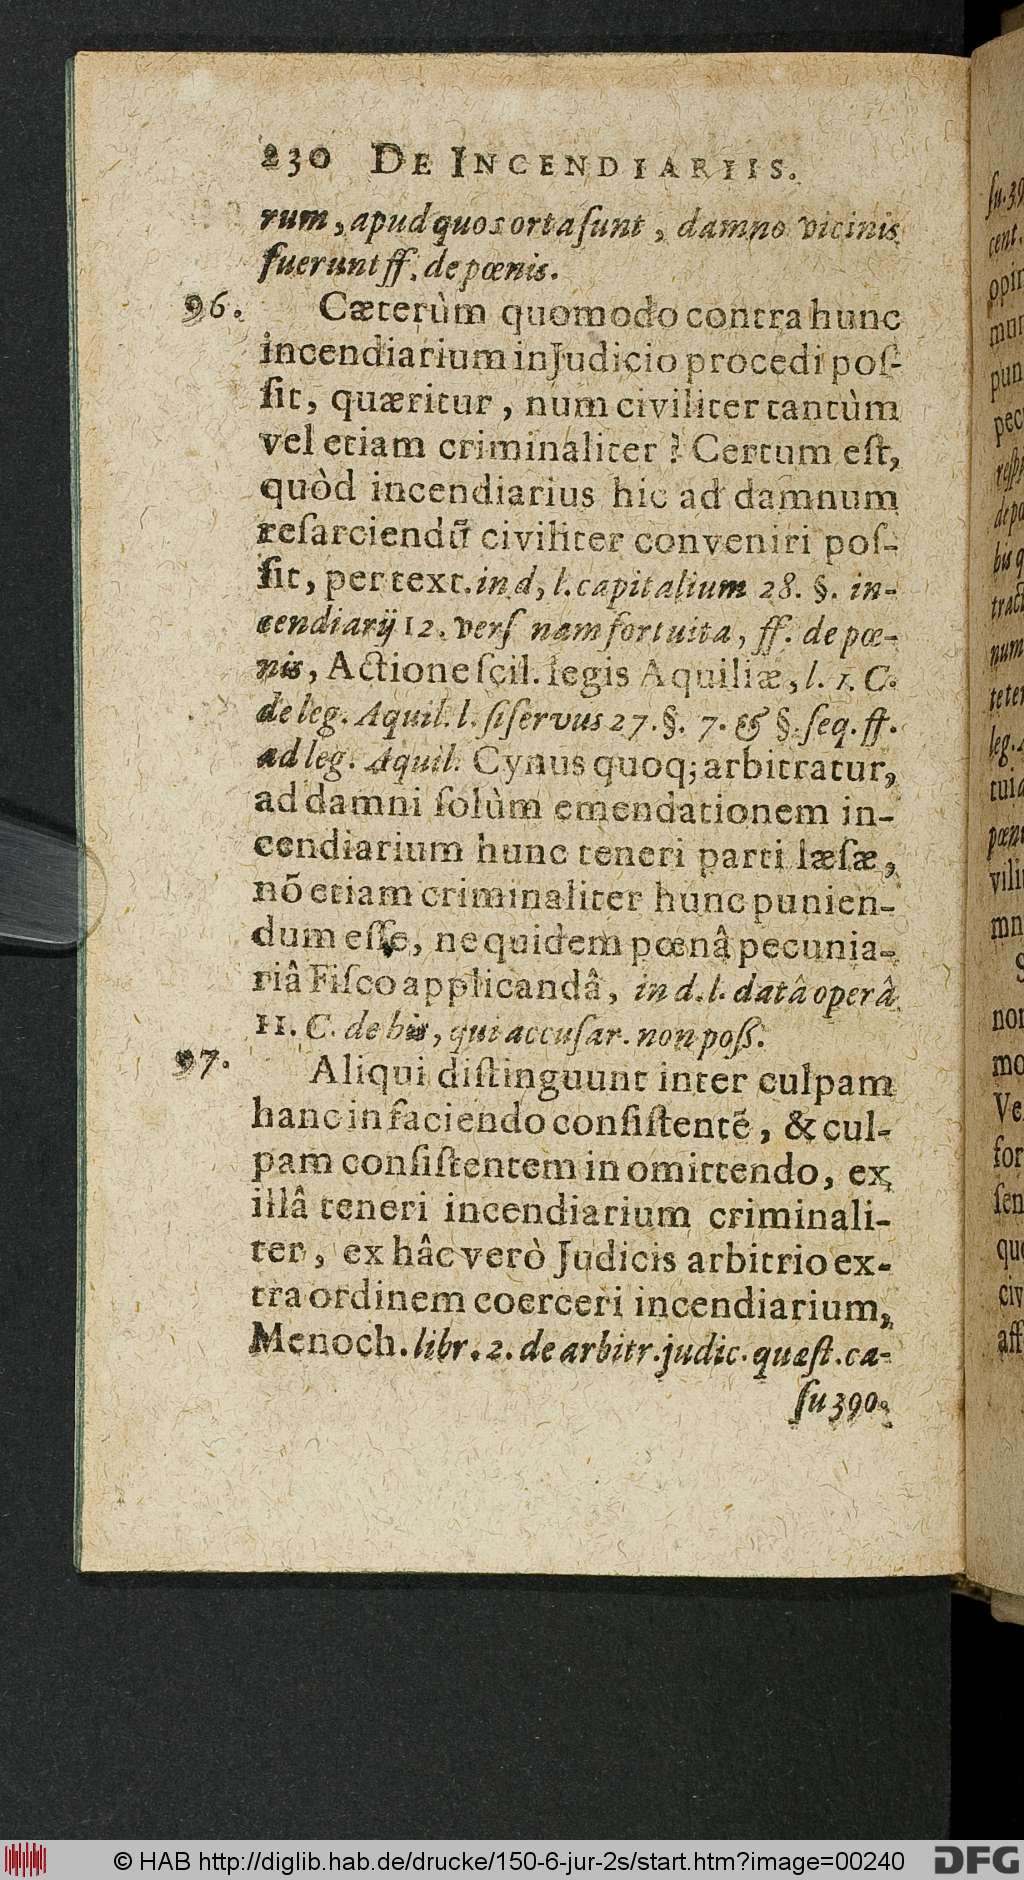 230 DE INCENDIARIIS.
rum, apud quos orta ſunt, damno vicinis
fuerunt ff. de pœnis.
96. Cæterùm quomodo contra hunc
incendiarium in Judicio procedi poſ-
ſit, quæritur, num civiliter tantùm
vel etiam criminaliter? Certum eſt,
quòd incendiarius hic ad damnum
reſarciendũ civiliter conveniri poſ-
ſit, per text. in d, l. capitalium 28. §. in-
cendiarij 12. verſ nam fortuita, ff. de pœ-
nis, Actione ſcil. legis Aquiliæ, l. 1. C.
de leg. Aquil. l. ſi ſervus 27. §. 7. & §. ſeq. ff.
ad leg. Aquil. Cynus quoq; arbitratur,
ad damni ſolùm emendationem in-
cendiarium hunc teneri parti læſæ,
nõ etiam criminaliter hunc punien-
dum eſſe, ne quidem pœnâ pecunia-
riâ Fiſco applicandâ, in d. l. datâ operâ
11. C. de his, qui accuſar. non poſſ.
97. Aliqui diſtinguunt inter culpam
hanc in faciendo conſiſtentẽ, & cul-
pam conſiſtentem in omittendo, ex
illâ teneri incendiarium criminali-
ter, ex hâc verò Judicis arbitrio ex-
tra ordinem coerceri incendiarium,
Menoch. libr. 2. de arbitr. judic. quæſt. ca-
ſu 390.
ſu. 39
cent.
opin
mun
pun
pec
reſp
de pœ
bis q
tract
num
teter
leg. A
tui a
pœn
vili
mn
S
non
mo
Ve
for
ſen
quo
civ
aff
© HAB http://diglib.hab.de/drucke/150-6-jur-2s/start.htm?image=00240
DFG